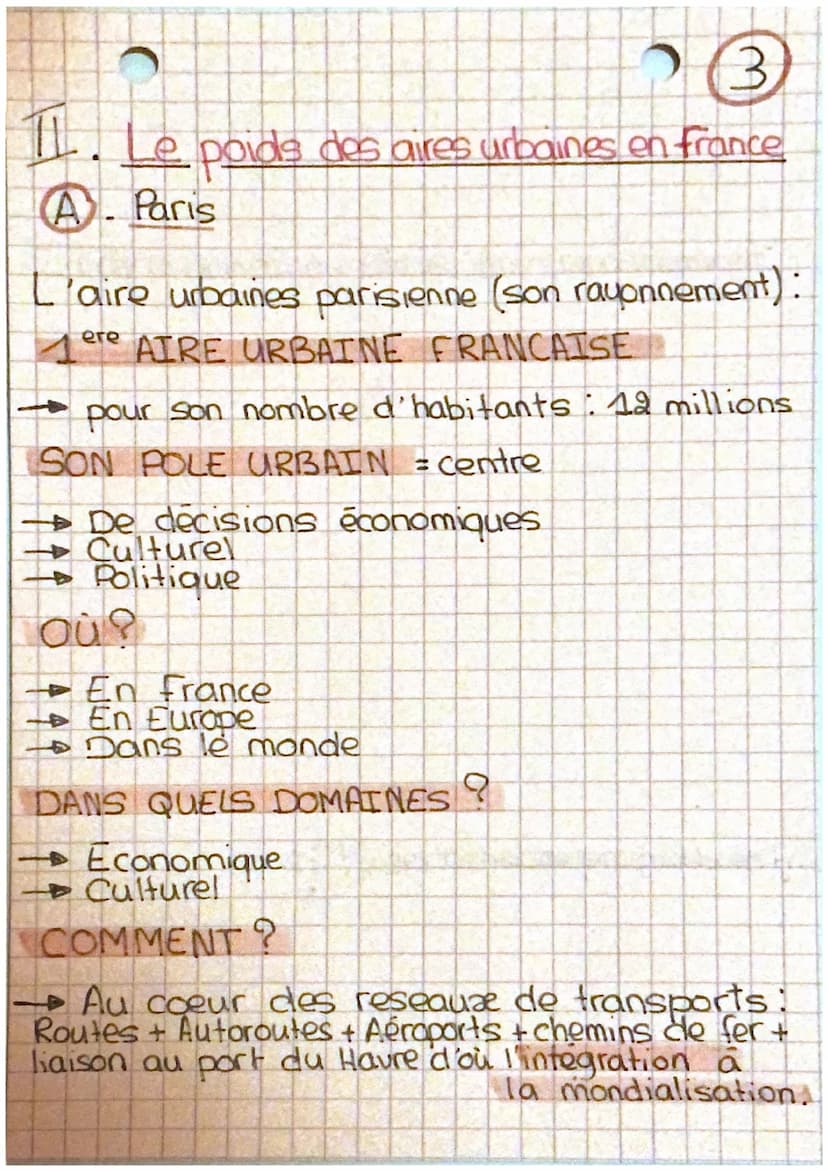 3
II. Le poids des aires urbaines en france
A. Paris
L'aire urbaines parisienne (son rayonnement) :
1ere AIRE URBAINE FRANCAISE
→ pour son nombre d'habitants : 12 millions
SON POLE URBAIN = centre
→ De décisions économiques
→ Culturel
→ Politique
OÙ?
→ En france
→ En Europe
→ Dans le monde
DANS QUELS DOMAINES ?
→ Economique
→ Culturel
COMMENT ?
→ Au coeur des reseaux de transports :
Routes + Autoroutes + Aéroports + chemins de fer +
liaison au port du Havre d'où l'intégration à
la mondialisation.